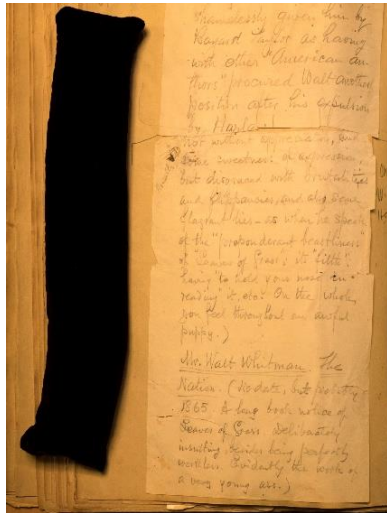 shamelessly given him by
Bayard Taylor as having
with other "American au-
thors" procured Walt another
position after his expulsion
by Harlan!
Not without appreciation, and
some sweetness of expression,
but disowned with brutalities
and flippancies, and also some
flagrant lies—as when he speaks
of the "preponderant beastliness"
of Leaves of Grass, its
having "to hold your nose in
reading" it, etc. On the whole
you feel throughout an awful
puppy.)
Mr. Walt Whitman. The
Nation. (No date, but probably
1865. A long book notice of
Leaves of Grass. Deliberately
insulting, besides being perfectly
worthless. Evidently the work of
a very young ass.)